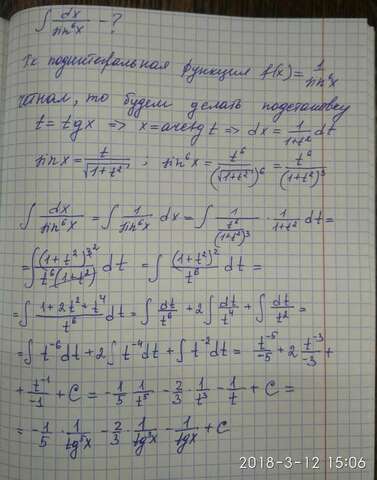 ∫ dx/sin⁶x - ?
Тк подинтегральная функция f(x) = 1/sin⁶x
чётная, то будем делать подстановку
t = tgx => x = arctg t => dx = 1/(1+t²) dt
sinx = t/√(1+t²) ; sin⁶x = t⁶/(√(1+t²))⁶ = t⁶/(1+t²)³
∫ dx/sin⁶x = ∫ 1/sin⁶x dx = ∫ 1/(t⁶/(1+t²)³) · 1/(1+t²) dt =
= ∫ (1+t²)³²/(t⁶(1+t²)) dt = ∫ (1+t²)²/t⁶ dt =
= ∫ (1+2t²+t⁴)/t⁶ dt = ∫ dt/t⁶ + 2∫ dt/t⁴ + ∫ dt/t² =
= ∫ t⁻⁶dt + 2∫ t⁻⁴dt + ∫ t⁻²dt = t⁻⁵/-5 + 2 t⁻³/-3 +
+ t⁻¹/-1 + C = -1/5 · 1/t⁵ - 2/3 · 1/t³ - 1/t + C =
= -1/5 · 1/tg⁵x - 2/3 · 1/tg³x - 1/tgx + C
2018-3-12 15:06